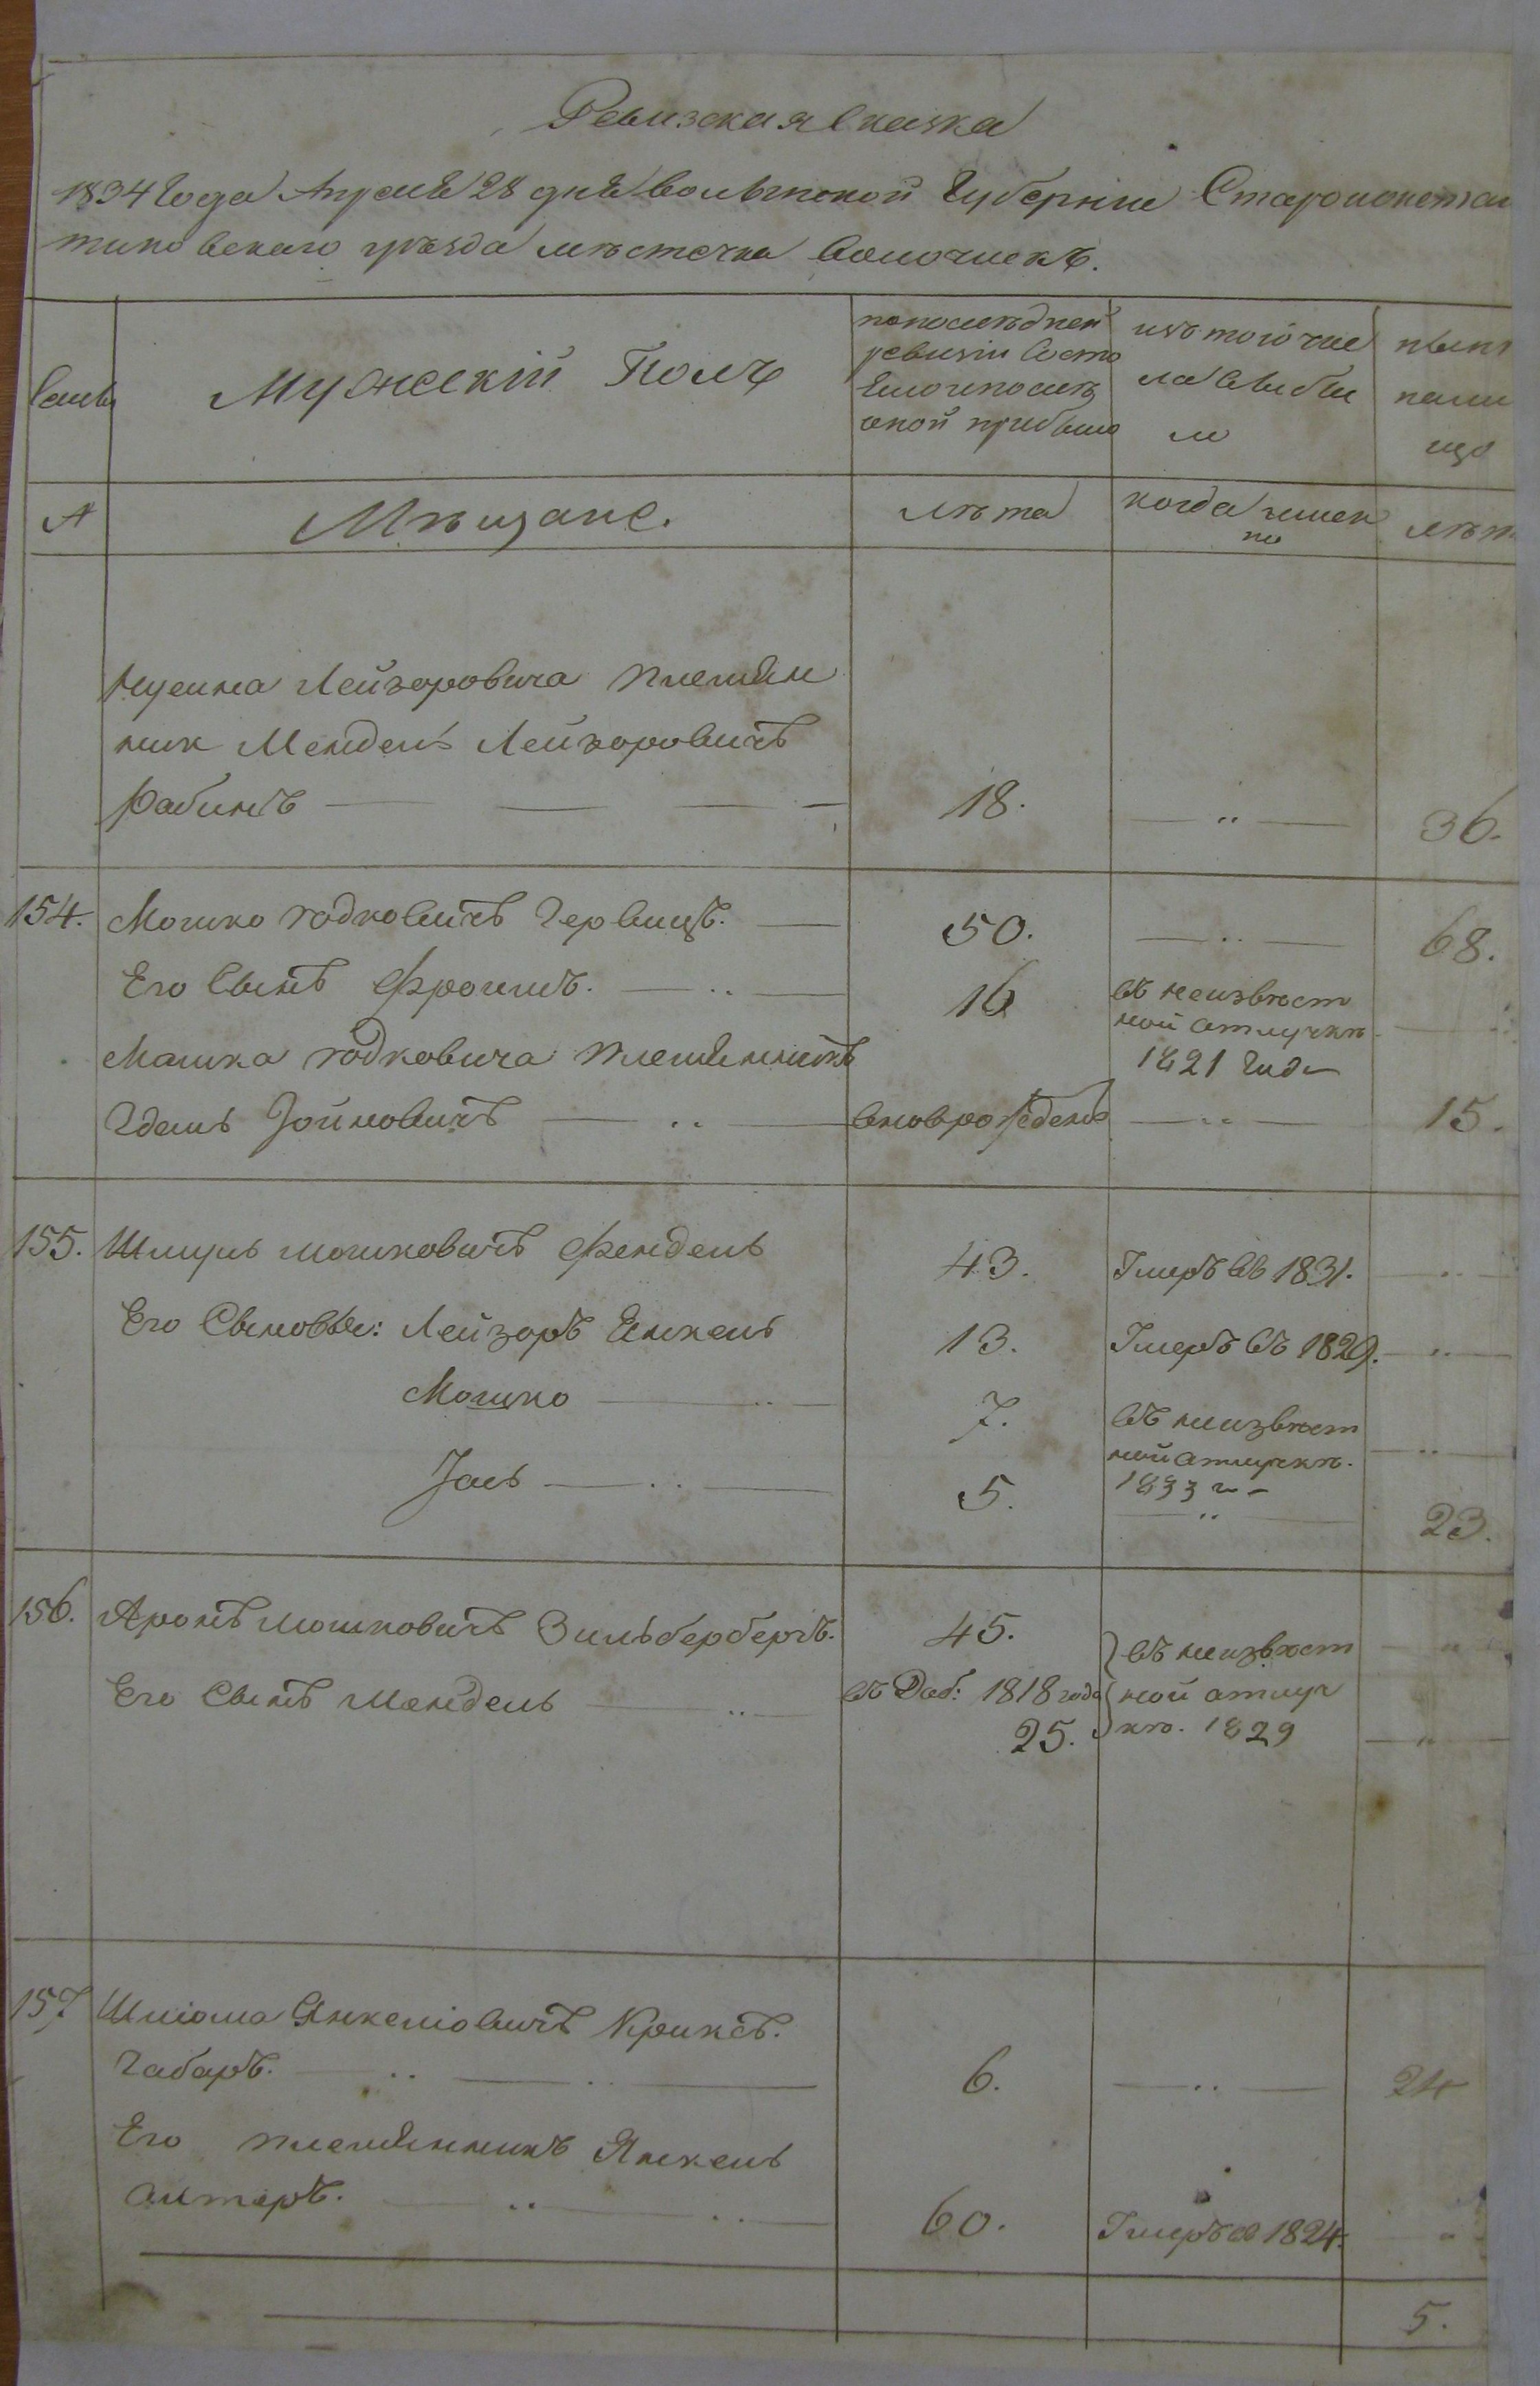 Ревизская Сказка
1834 Года Апреля 28 дня Волынской Губернiи Староконстан
тиновскаго уѣзда мѣстечка Волочискъ.
Мужескiй Полъ
попослѣдней
ревизiи Состо
яло и послѣ
оной прибыло
изъ того чис
ла выбы
ло
ныне
нали
цо
А
Мѣщане.
лѣта
когда имен
но
лѣт
Лейзоровича племян
ник Мендель Лейзоровичъ
Рабинъ
18.
36.
154.
Мошко Юдковичъ Гервицъ.
50.
68.
Его Сынъ Фроимъ.
16
въ неизвѣст
ной отлучкѣ
1821 Года
Мошка Юдковича племянникъ
Йойновичъ
вноврожденъ
15.
155.
Шмуль Мошковичъ Фендель
43.
Умеръ въ 1831.
Его Сыновья: Лейзоръ Янкель
13.
Умеръ въ 1829.
Мошко
7.
въ неизвѣст
ной отлучкѣ.
1833 г
Йось
5.
23.
156.
Аронъ Мошковичъ Зильбербергъ.
45.
въ неизвѣст
Его Сынъ Мендель
въ Доб: 1818 года
ной отлуч
25.
кѣ. 1829
157
Шлiома Янкелiовичъ
6.
24
Его племянникъ Янкель
60.
Умеръ въ 1824.
5.